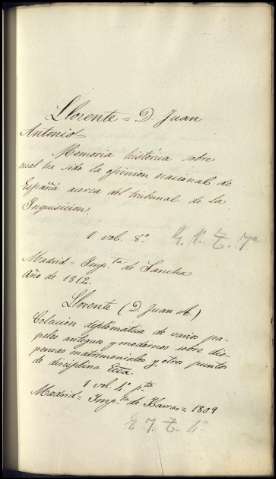 Llorente = D. Juan
Antonio =
Memoria histórica sobre
cual ha sido la opinion nacional de
España acerca del tribunal de la
Inquisicion.
1 vol. 8º
Madrid = Imp.ta de Sancha
Año de 1812.
Llorente (D. Juan A.)
Colecion diplomatica de varios pa-
peles antiguos y modernos sobre dis-
pensas matrimoniales y otros puntos
de disciplina Ecca.
1 vol 4º pta
Madrid = Imp.ta de Ibarra = 1809